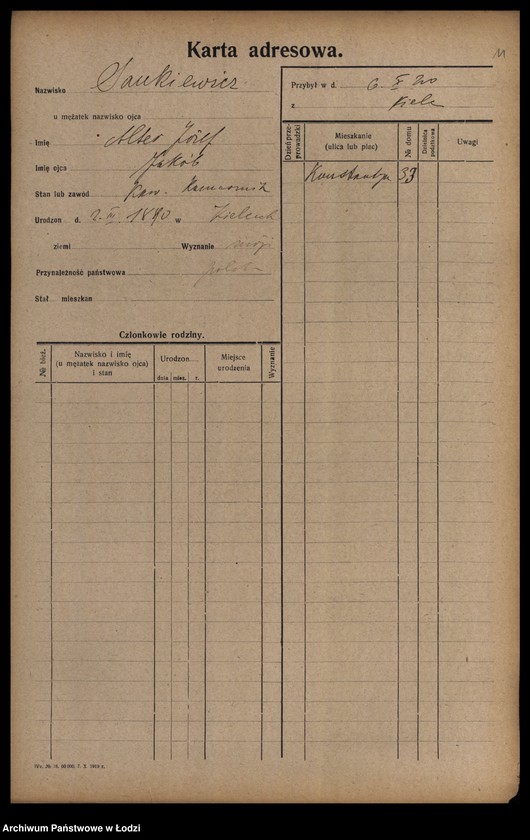 11
Karta adresowa.
Nazwisko Sankiewicz
u mężatek nazwisko ojca
Imię Alter Józef
Imię ojca Jakób
Stan lub zawód Kaw.
Urodzon d. 2. 1890 w
ziemi Wyznanie
Przynależność państwowa
Stał mieszkan
Przybył w d. 6. X 20
z Kielc
Dzień przeprowadzki
Mieszkanie (ulica lub plac)
№ domu
Dzielnica podatkowa
Uwagi
33
Członkowie rodziny.
№ bież.
Nazwisko i imię
(u mężatek nazwisko ojca)
i stan
Urodzon
data mies. r.
Miejsce urodzenia
Wyznanie
Archiwum Państwowe w Łodzi